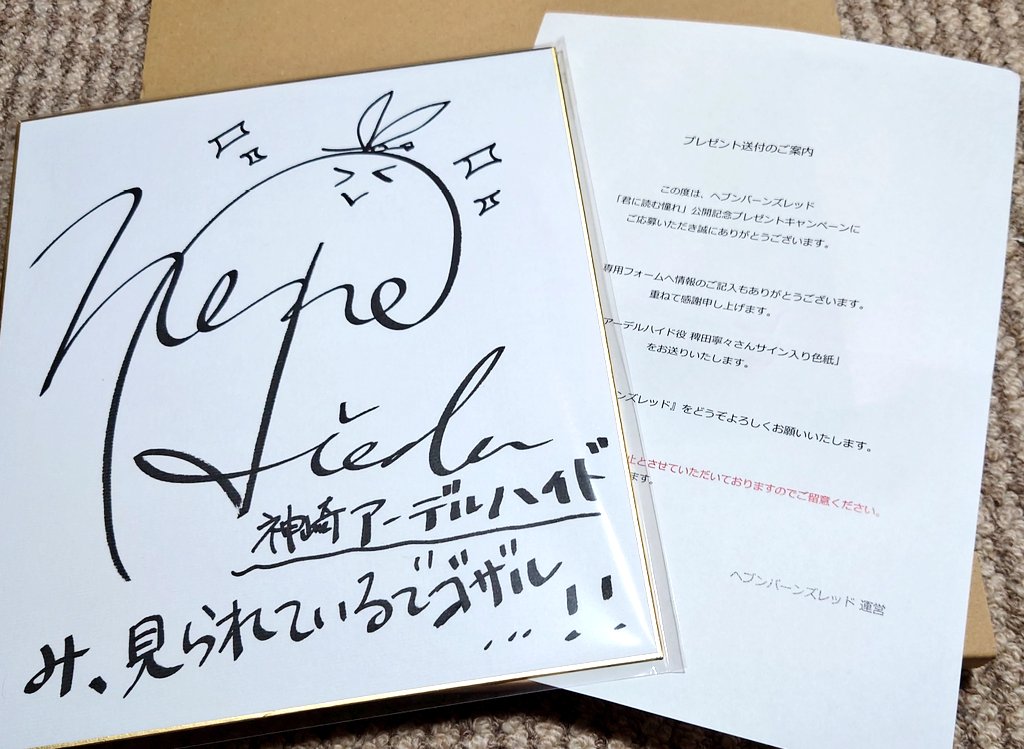 Nene
Hieda
神崎アーデルハイド
み、見られているでゴザル…!!
プレゼント送付のご案内
この度は、ヘブンバーンズレッド
「君に読む憧れ」公開記念プレゼントキャンペーンに
ご応募いただき誠にありがとうございます。
専用フォームへ情報のご記入もありがとうございます。
重ねて感謝申し上げます。
アーデルハイド役 稗田寧々さんサイン入り色紙」
をお送りいたします。
ンズレッド』をどうぞよろしくお願いいたします。
止とさせていただいておりますのでご留意ください。
ます。
ヘブンバーンズレッド 運営